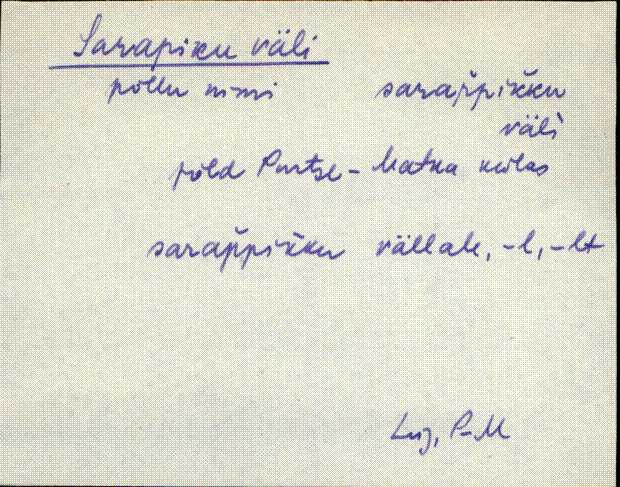 Sarapiku väli
põllu nimi sarap̌pik̆ku
väli
põld Purtse-Matka külas
sarap̌pik̆ku vällale, -l, -lt
Lüg, P-M